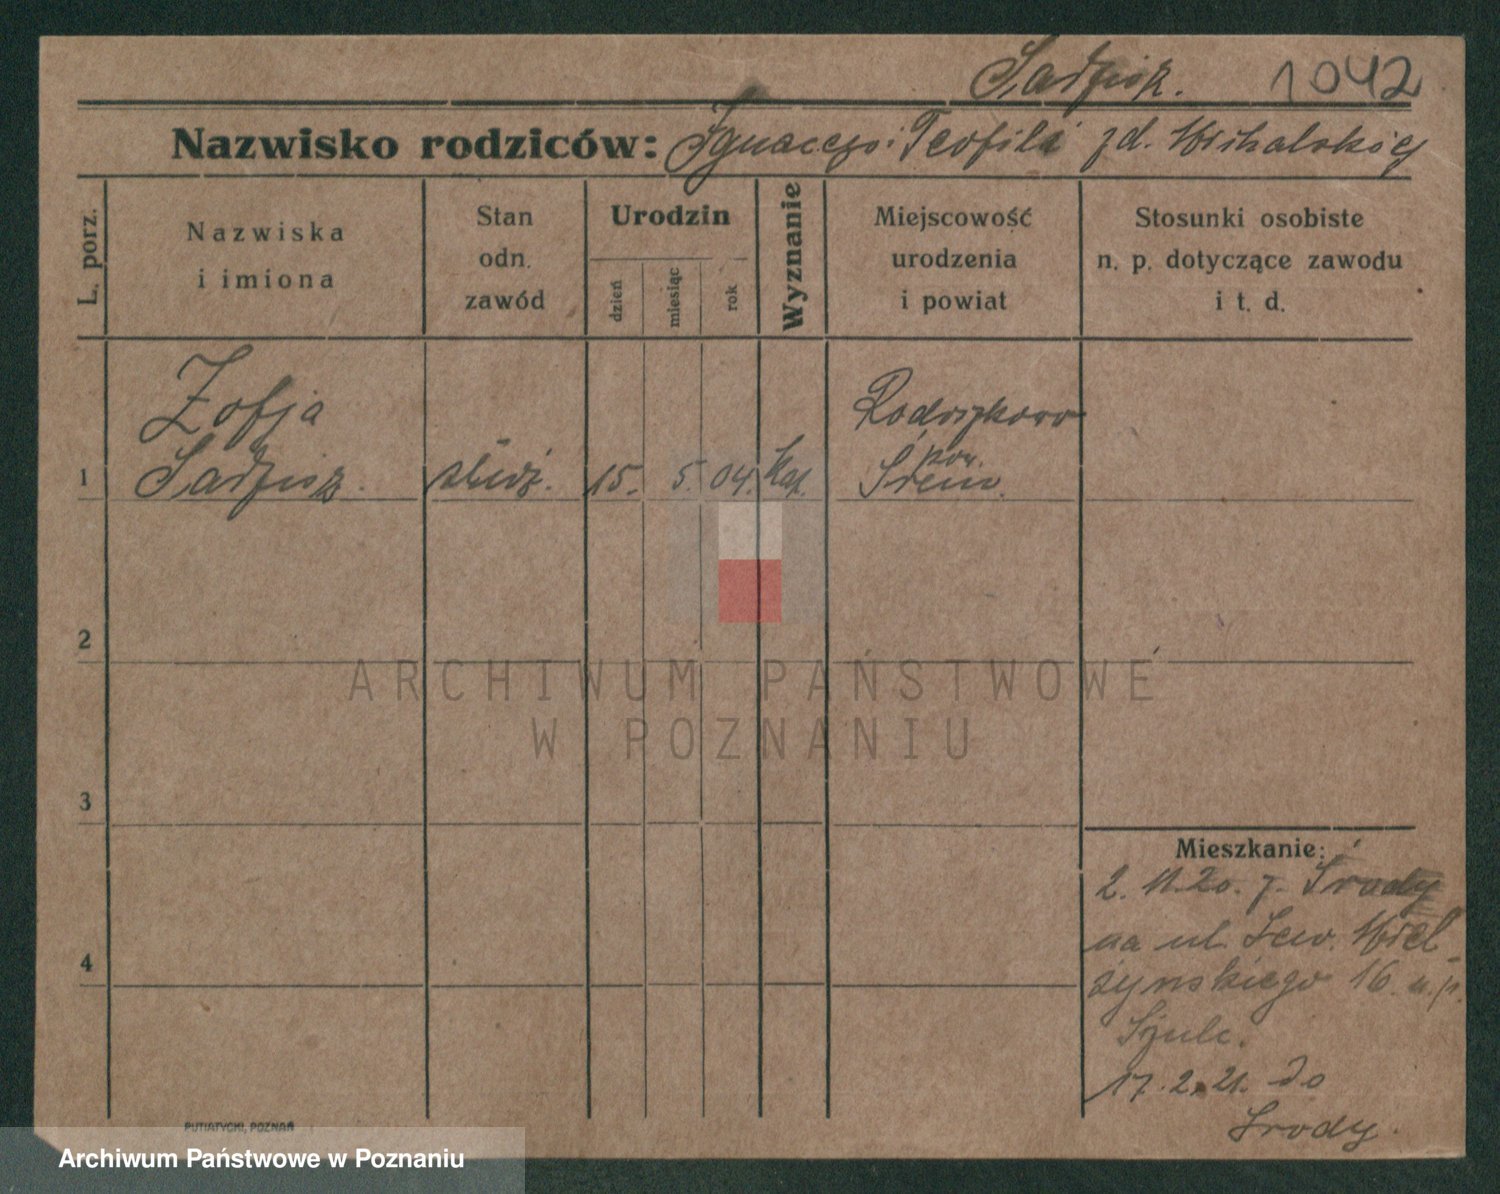 Sadzisz. 1042
Nazwisko rodziców: Ignacego i Teofili zd. Michalskiej
L. porz.
Nazwiska
i imiona
Stan
odn.
zawód
Urodzin
dzień
miesiąc
rok
Wyznanie
Miejscowość
urodzenia
i powiat
Stosunki osobiste
n. p. dotyczące zawodu
i t. d.
Zofja
Sadzisz.
1
służ.
15. 5. 04.
Kat.
pow.
Śrem.
2
ARCHIWUM PAŃSTWOWE
W POZNANIU
3
Mieszkanie:
2. 11. 20. z. Środy
na ul. Sew. Miel-
żyńskiego 16. u. p.
Szulc.
17. 2. 21. do
Środy.
4
PUTIATYCKI, POZNAŃ
Archiwum Państwowe w Poznaniu